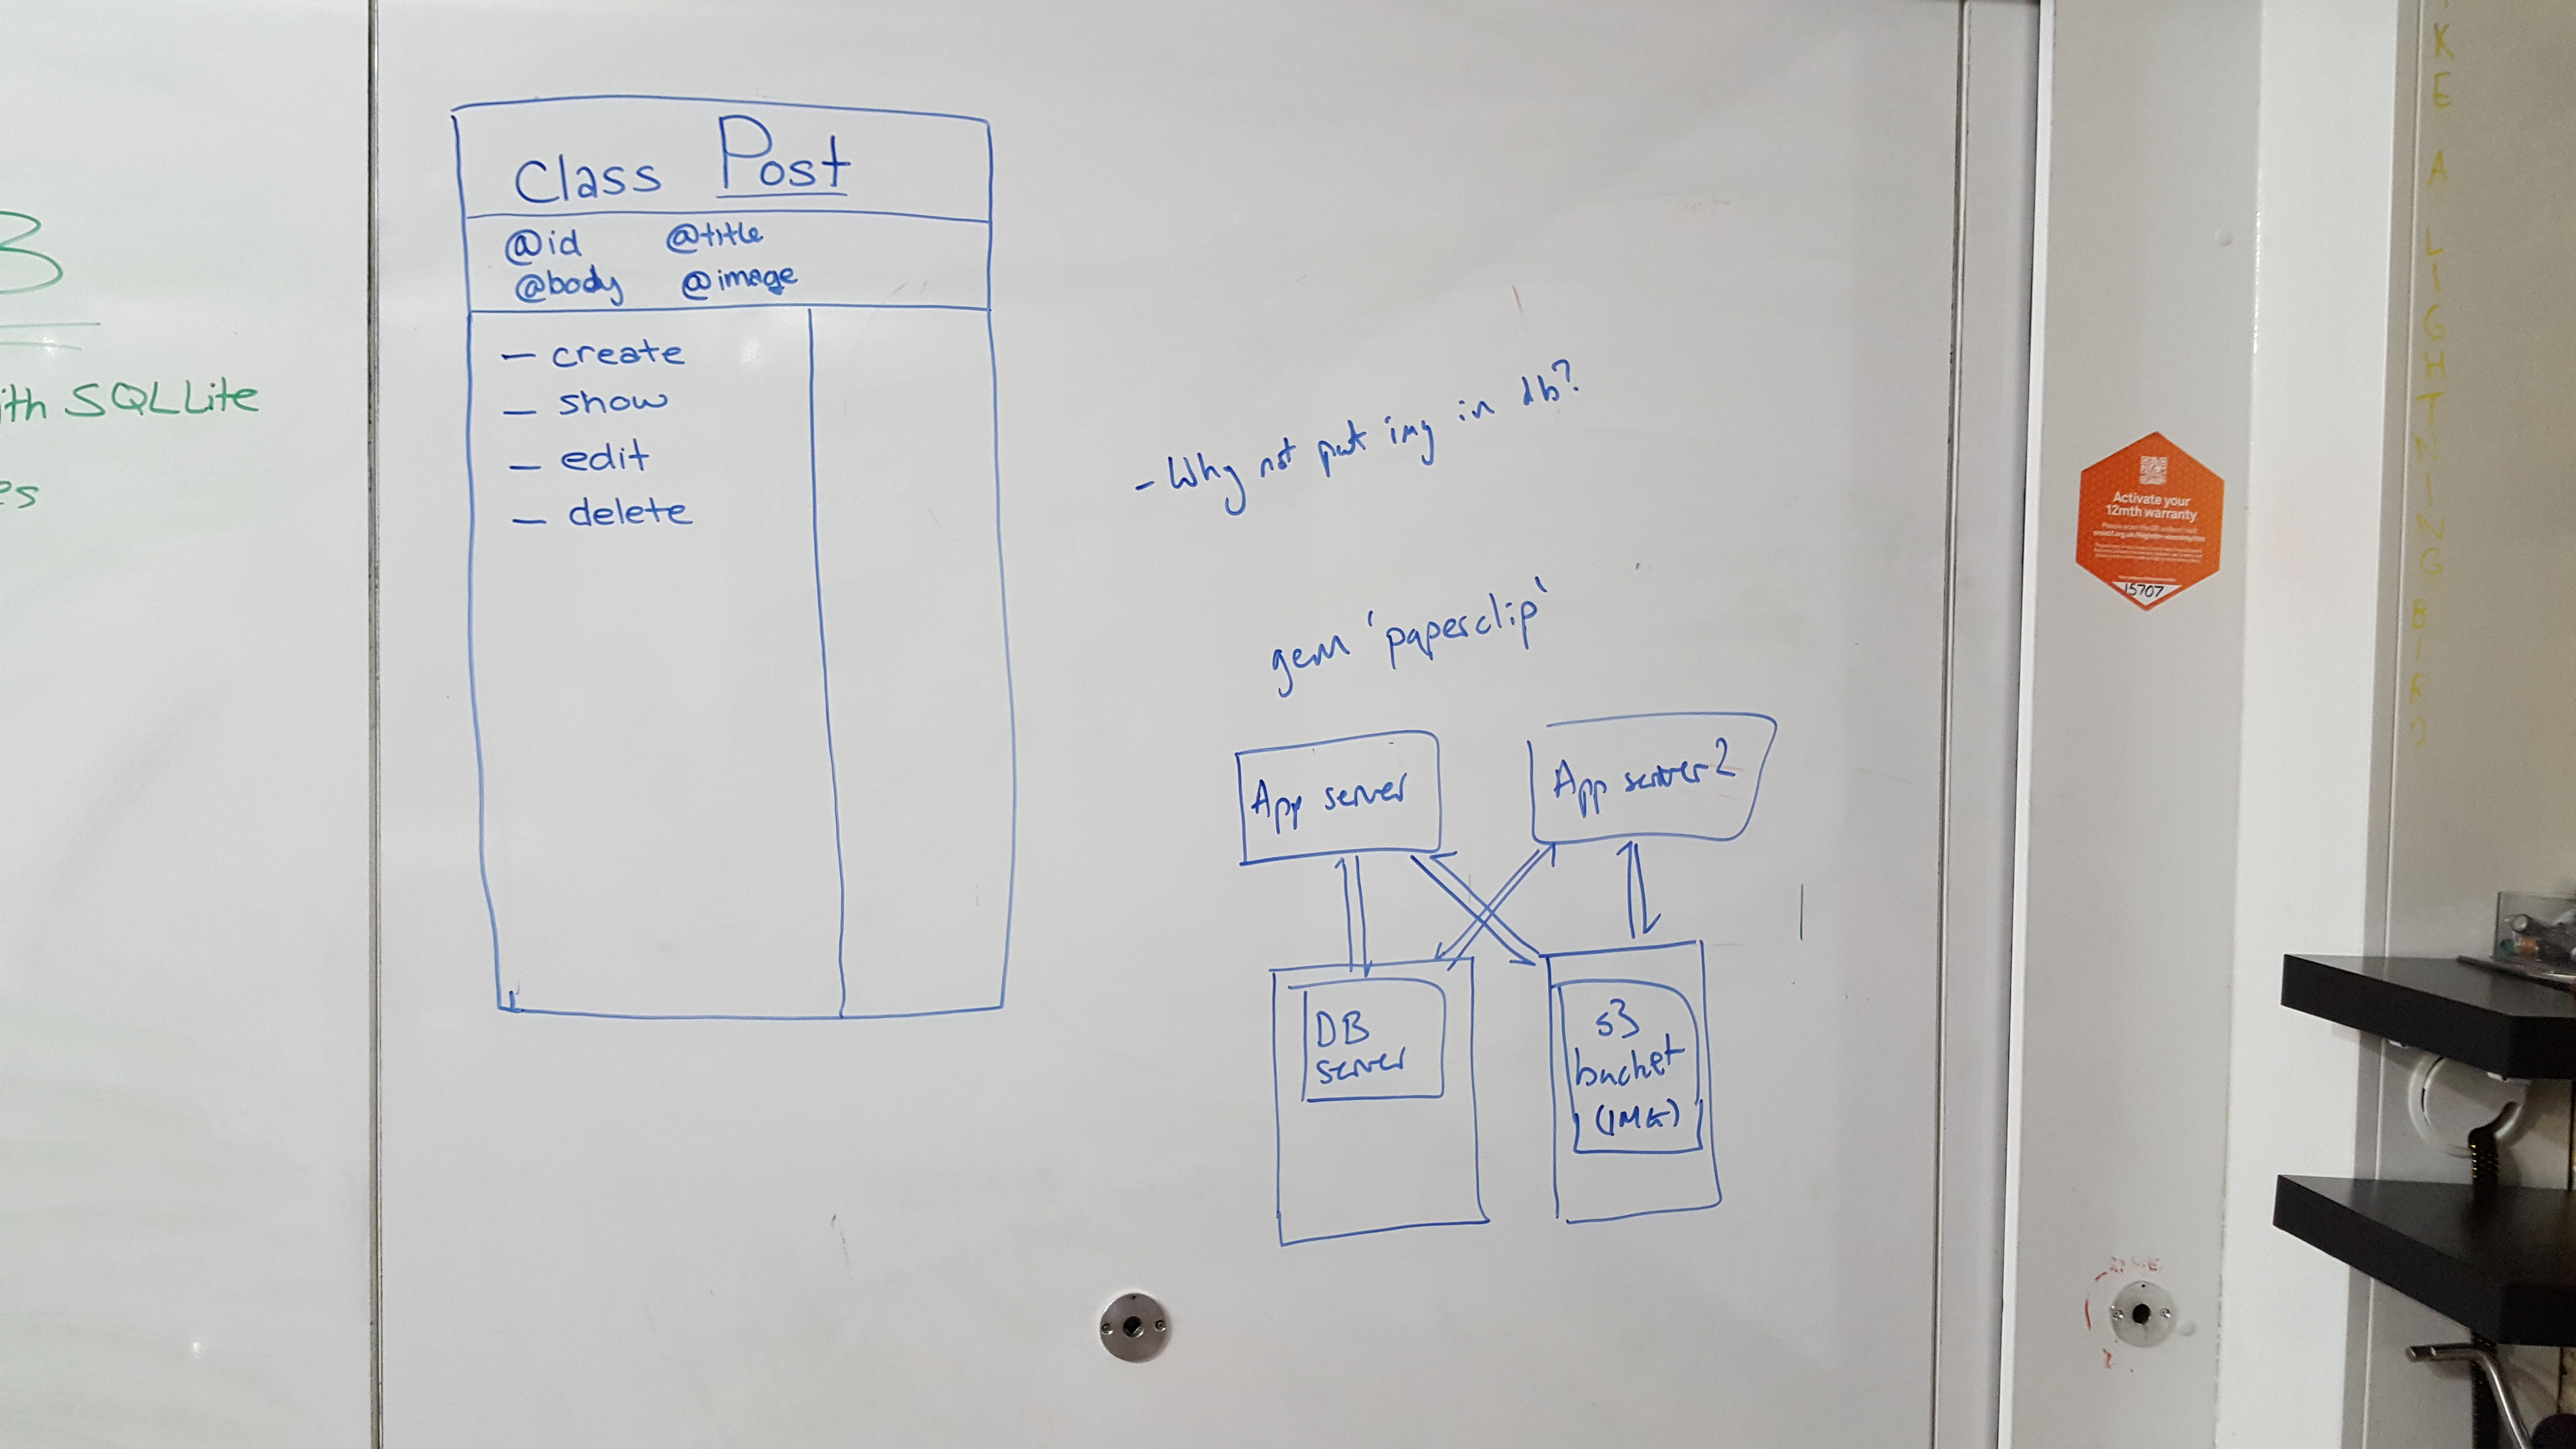 B
ith SQLLite
es
Class Post
@id @title
@body @image
– create
– show
– edit
– delete
- Why not put img in db?
gem 'paperclip'
App server
App server 2
DB
server
s3
bucket
(IMG)
Activate your
12mth warranty
15707
K
E
A
L
I
G
H
T
N
I
N
G
B
I
R
D